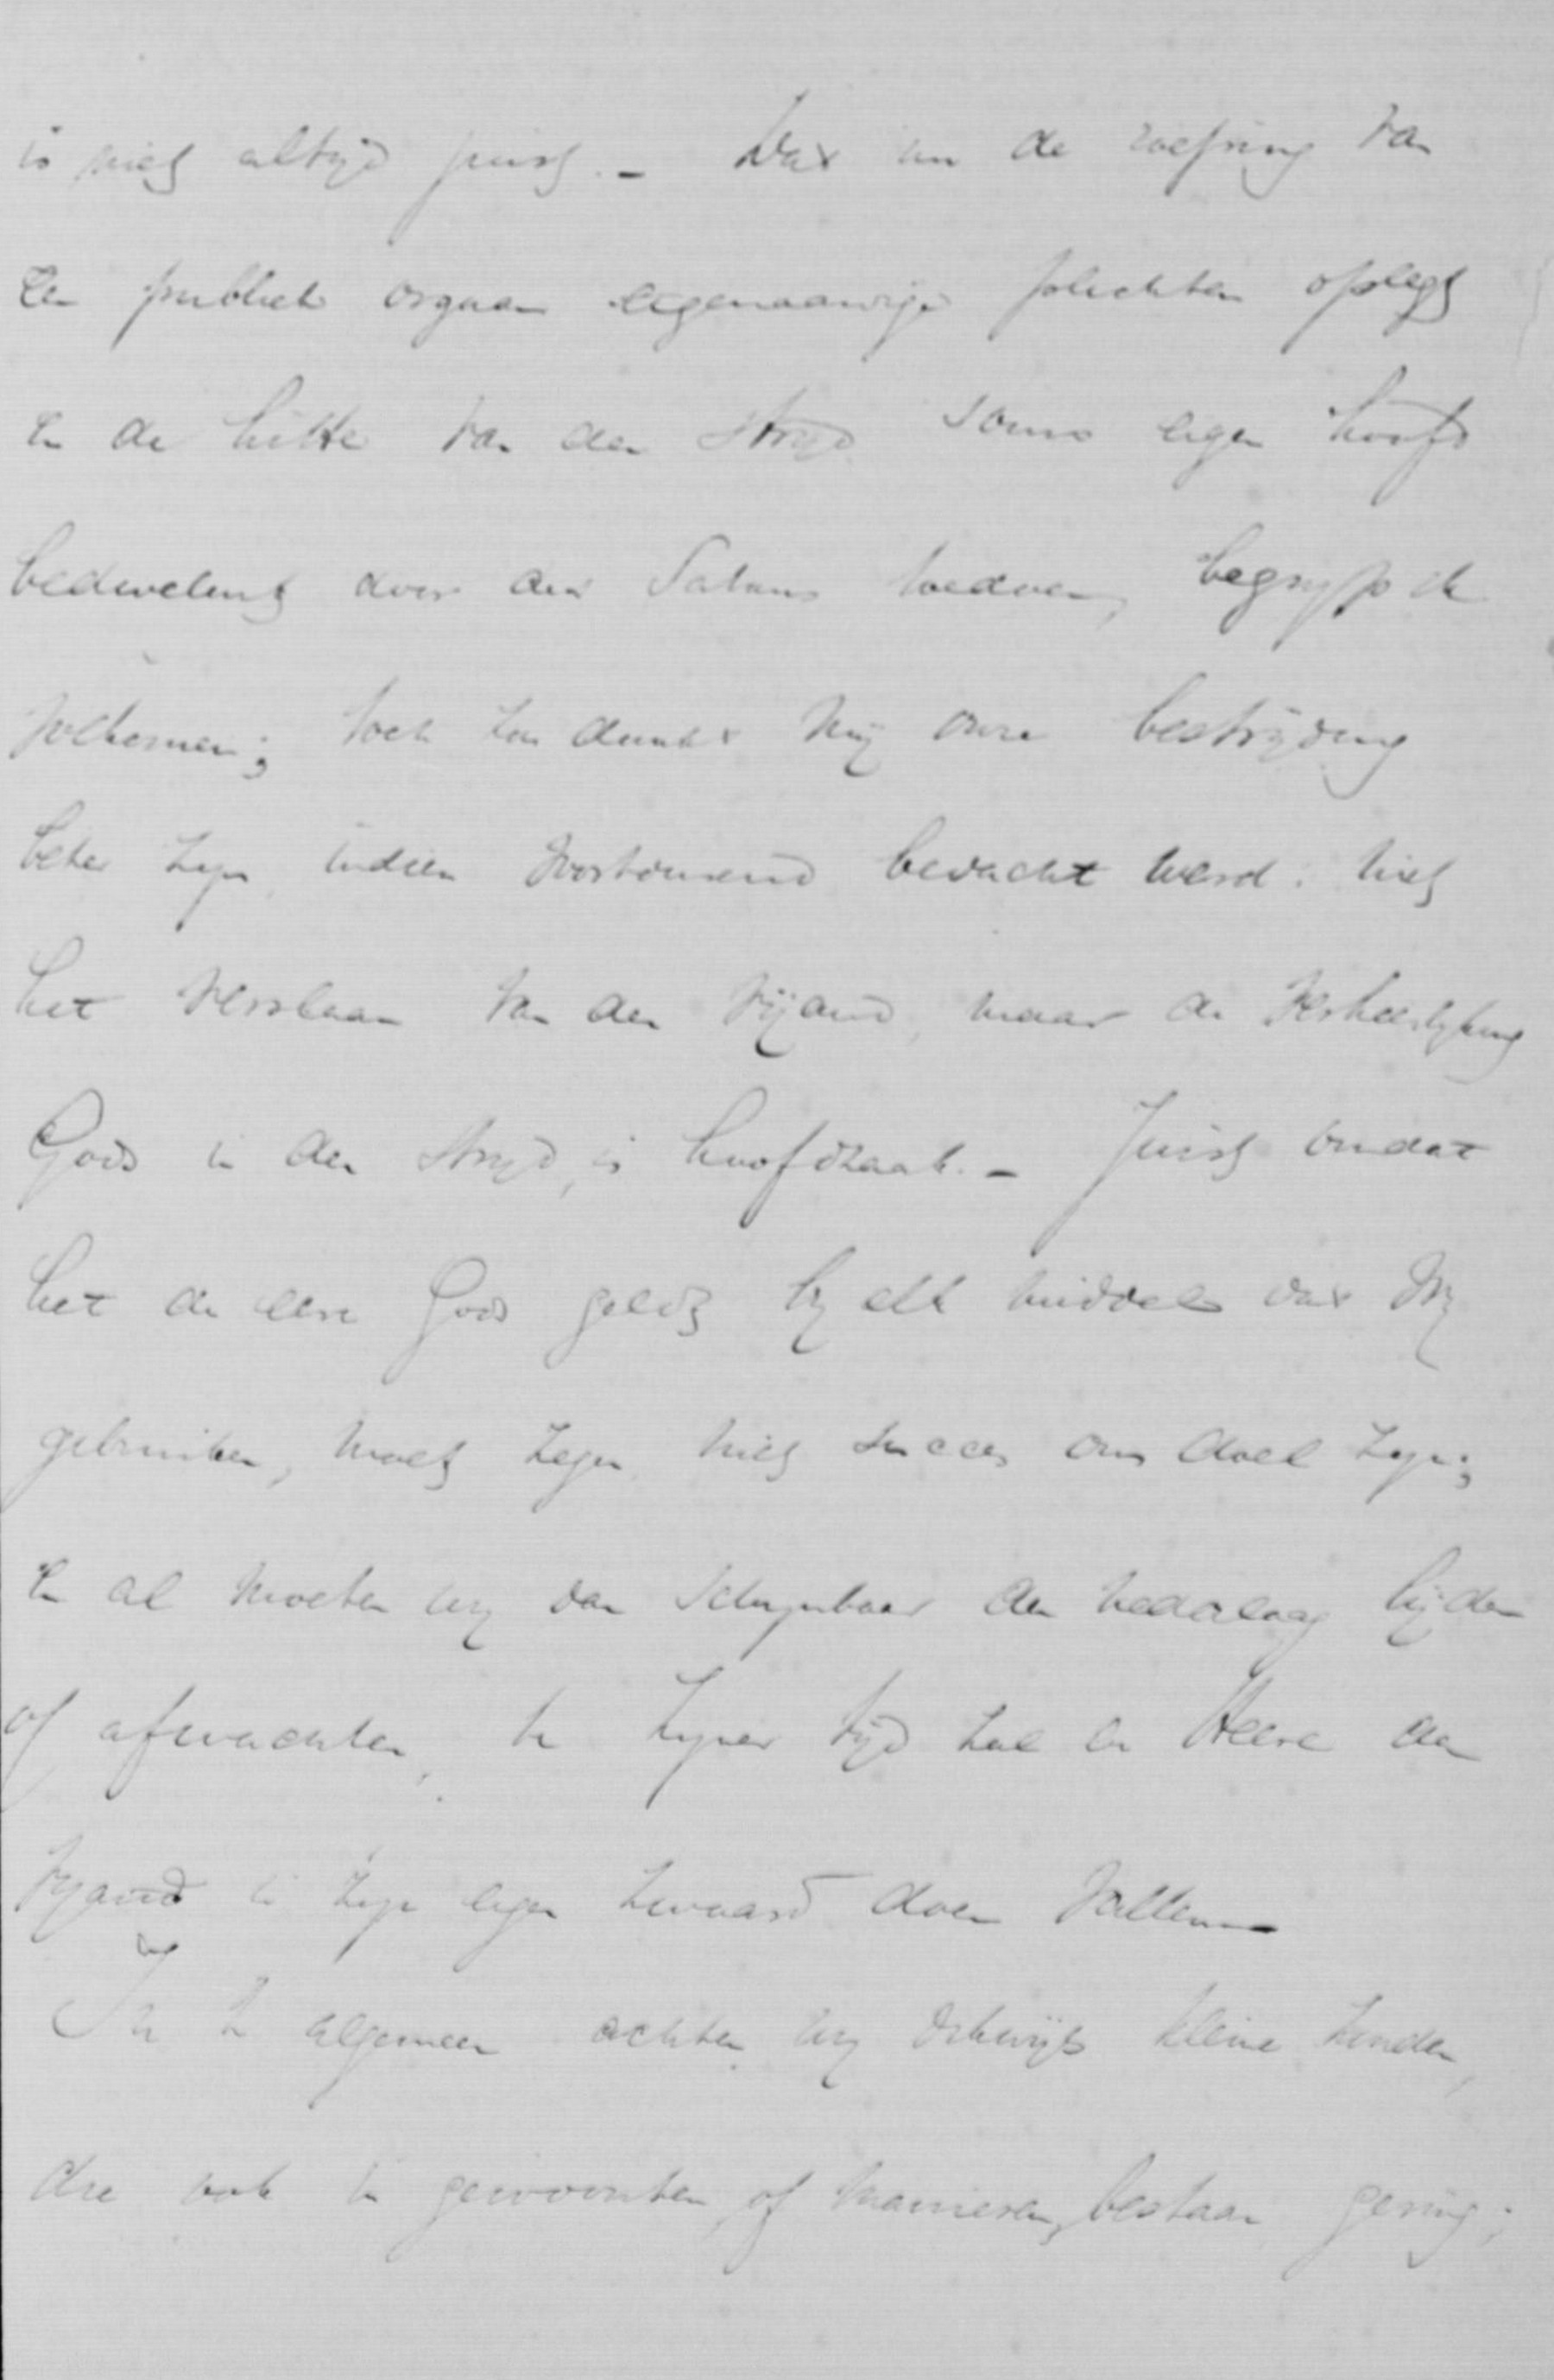 is niet altijd juist. - Dat nu de roeping van
een publiek orgaan eigenaardige plichten oplegt
en de hitte van den strijd soms eigen hoofd
bedwelmt door den Satans toedoen, begryp ik
volkomen; toch zou dunkt mij onze bestrijding
beter zyn indien voortdurend bedacht werd: niet
het verslaan van den vijand, maar de verheerlyking
Gods in den stryd, is hoofdzaak. - Juist omdat
het de eere Gods geldt by elk middel dat wy
gebruiken, moet zegen niet succes ons doel zyn;
en al moeten wy dan schynbaar den nederlaag lijden
of afwachten, te zyner tijd zal de Heere den
vyand in zyn eigen zwaard doen vallen -
In 't algemeen achten wy dikwijls kleine zonden,
die ook in gewoonten of manieren, bestaan gering;